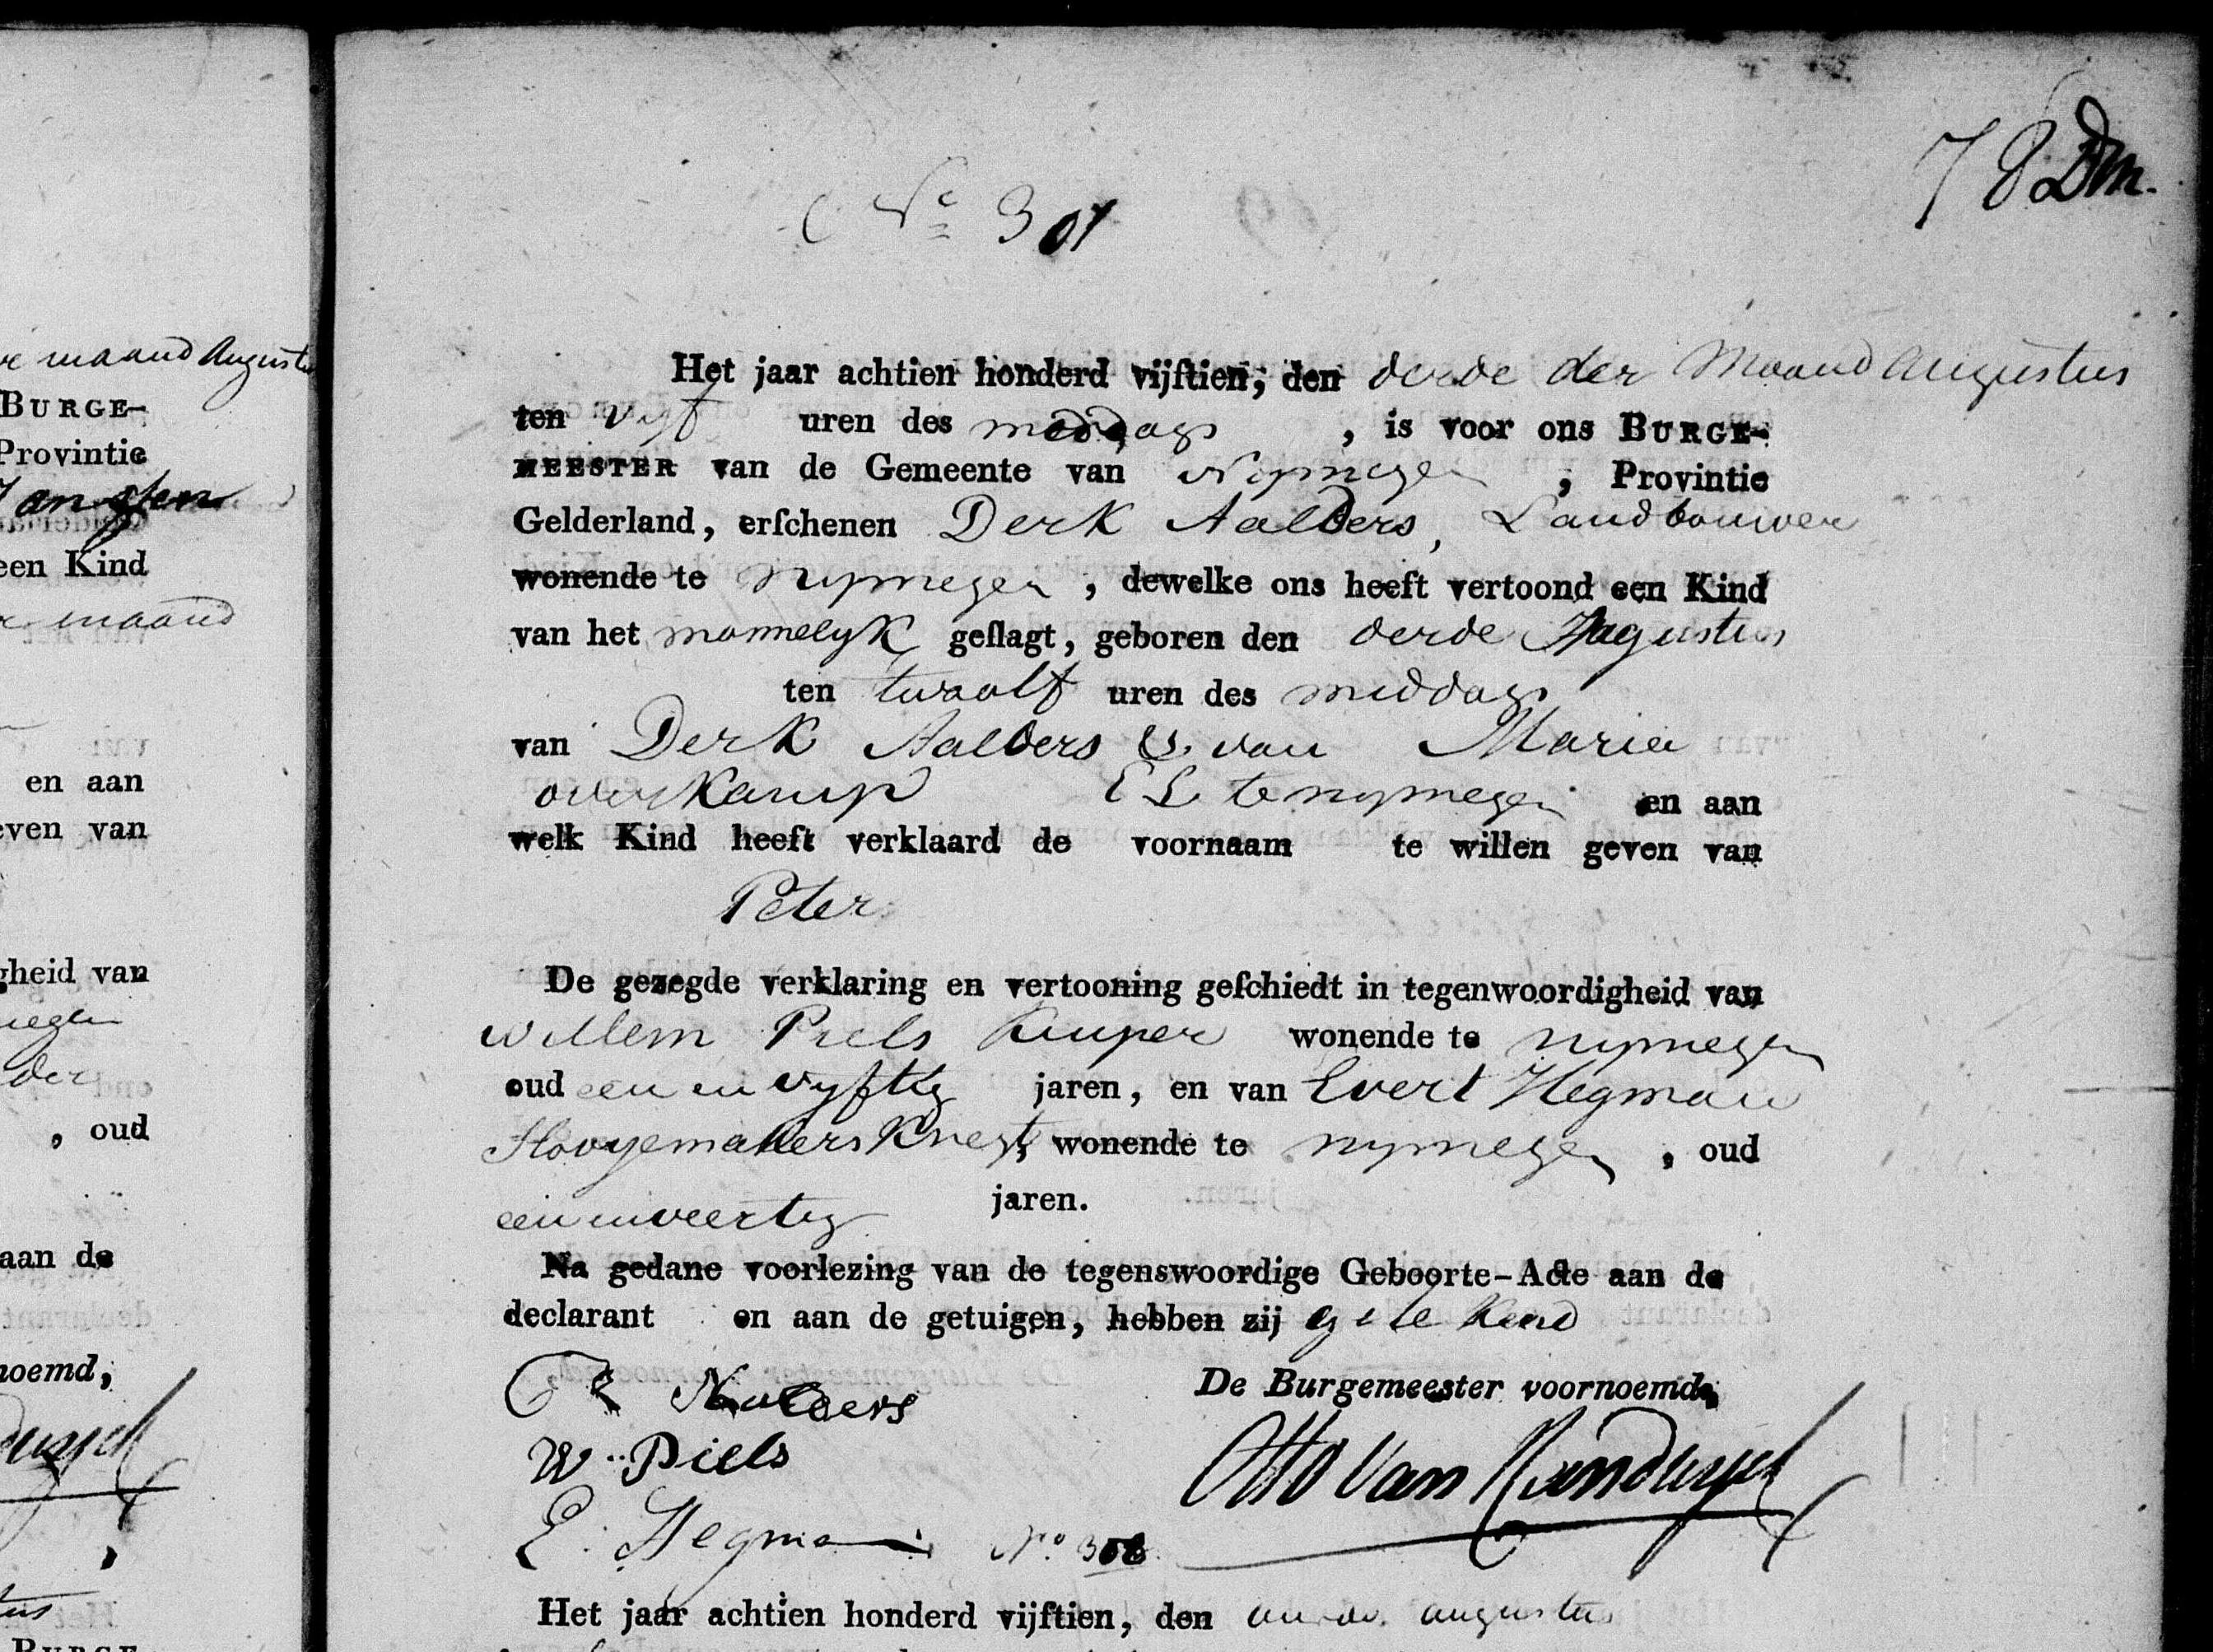 78
Nº 301
Het jaar achtien honderd vijftien, den derde der Maand Augustus
ten vyf uren des middags, is voor ons BURGE-
MEESTER van de Gemeente van Nymegen, Provintie
Gelderland, erſchenen Derk Aalders, Landbouwer
wonende te nymegen, dewelke ons heeft vertoond een Kind
van het mannelyk geſlagt, geboren den derde Augustus
ten twaalf uren des middags
van Derk Aalders & van Maria
overkamp EL te nymegen en aan
welk Kind heeft verklaard de voornaam te willen geven van
Peter
De gezegde verklaring en vertooning geſchiedt in tegenwoordigheid van
Willem Piels Kuiper wonende te nymegen
oud een en vyftig jaren, en van Evert Hegman
wonende te nymegen, oud
een en veertig jaren.
Na gedane voorlezing van de tegenswoordige Geboorte-Acte aan de
declarant en aan de getuigen, hebben zij getekend
Aalders
De Burgemeester voornoemd,
W. Piels
Otto van
E. Hegman
Nº 302
Het jaar achtien honderd vijftien, den augustus
maand Augustus
BURGE-
Provintie
Janssen
een Kind
maand
en aan
even van
gheid van
der
, oud
aan de
noemd,